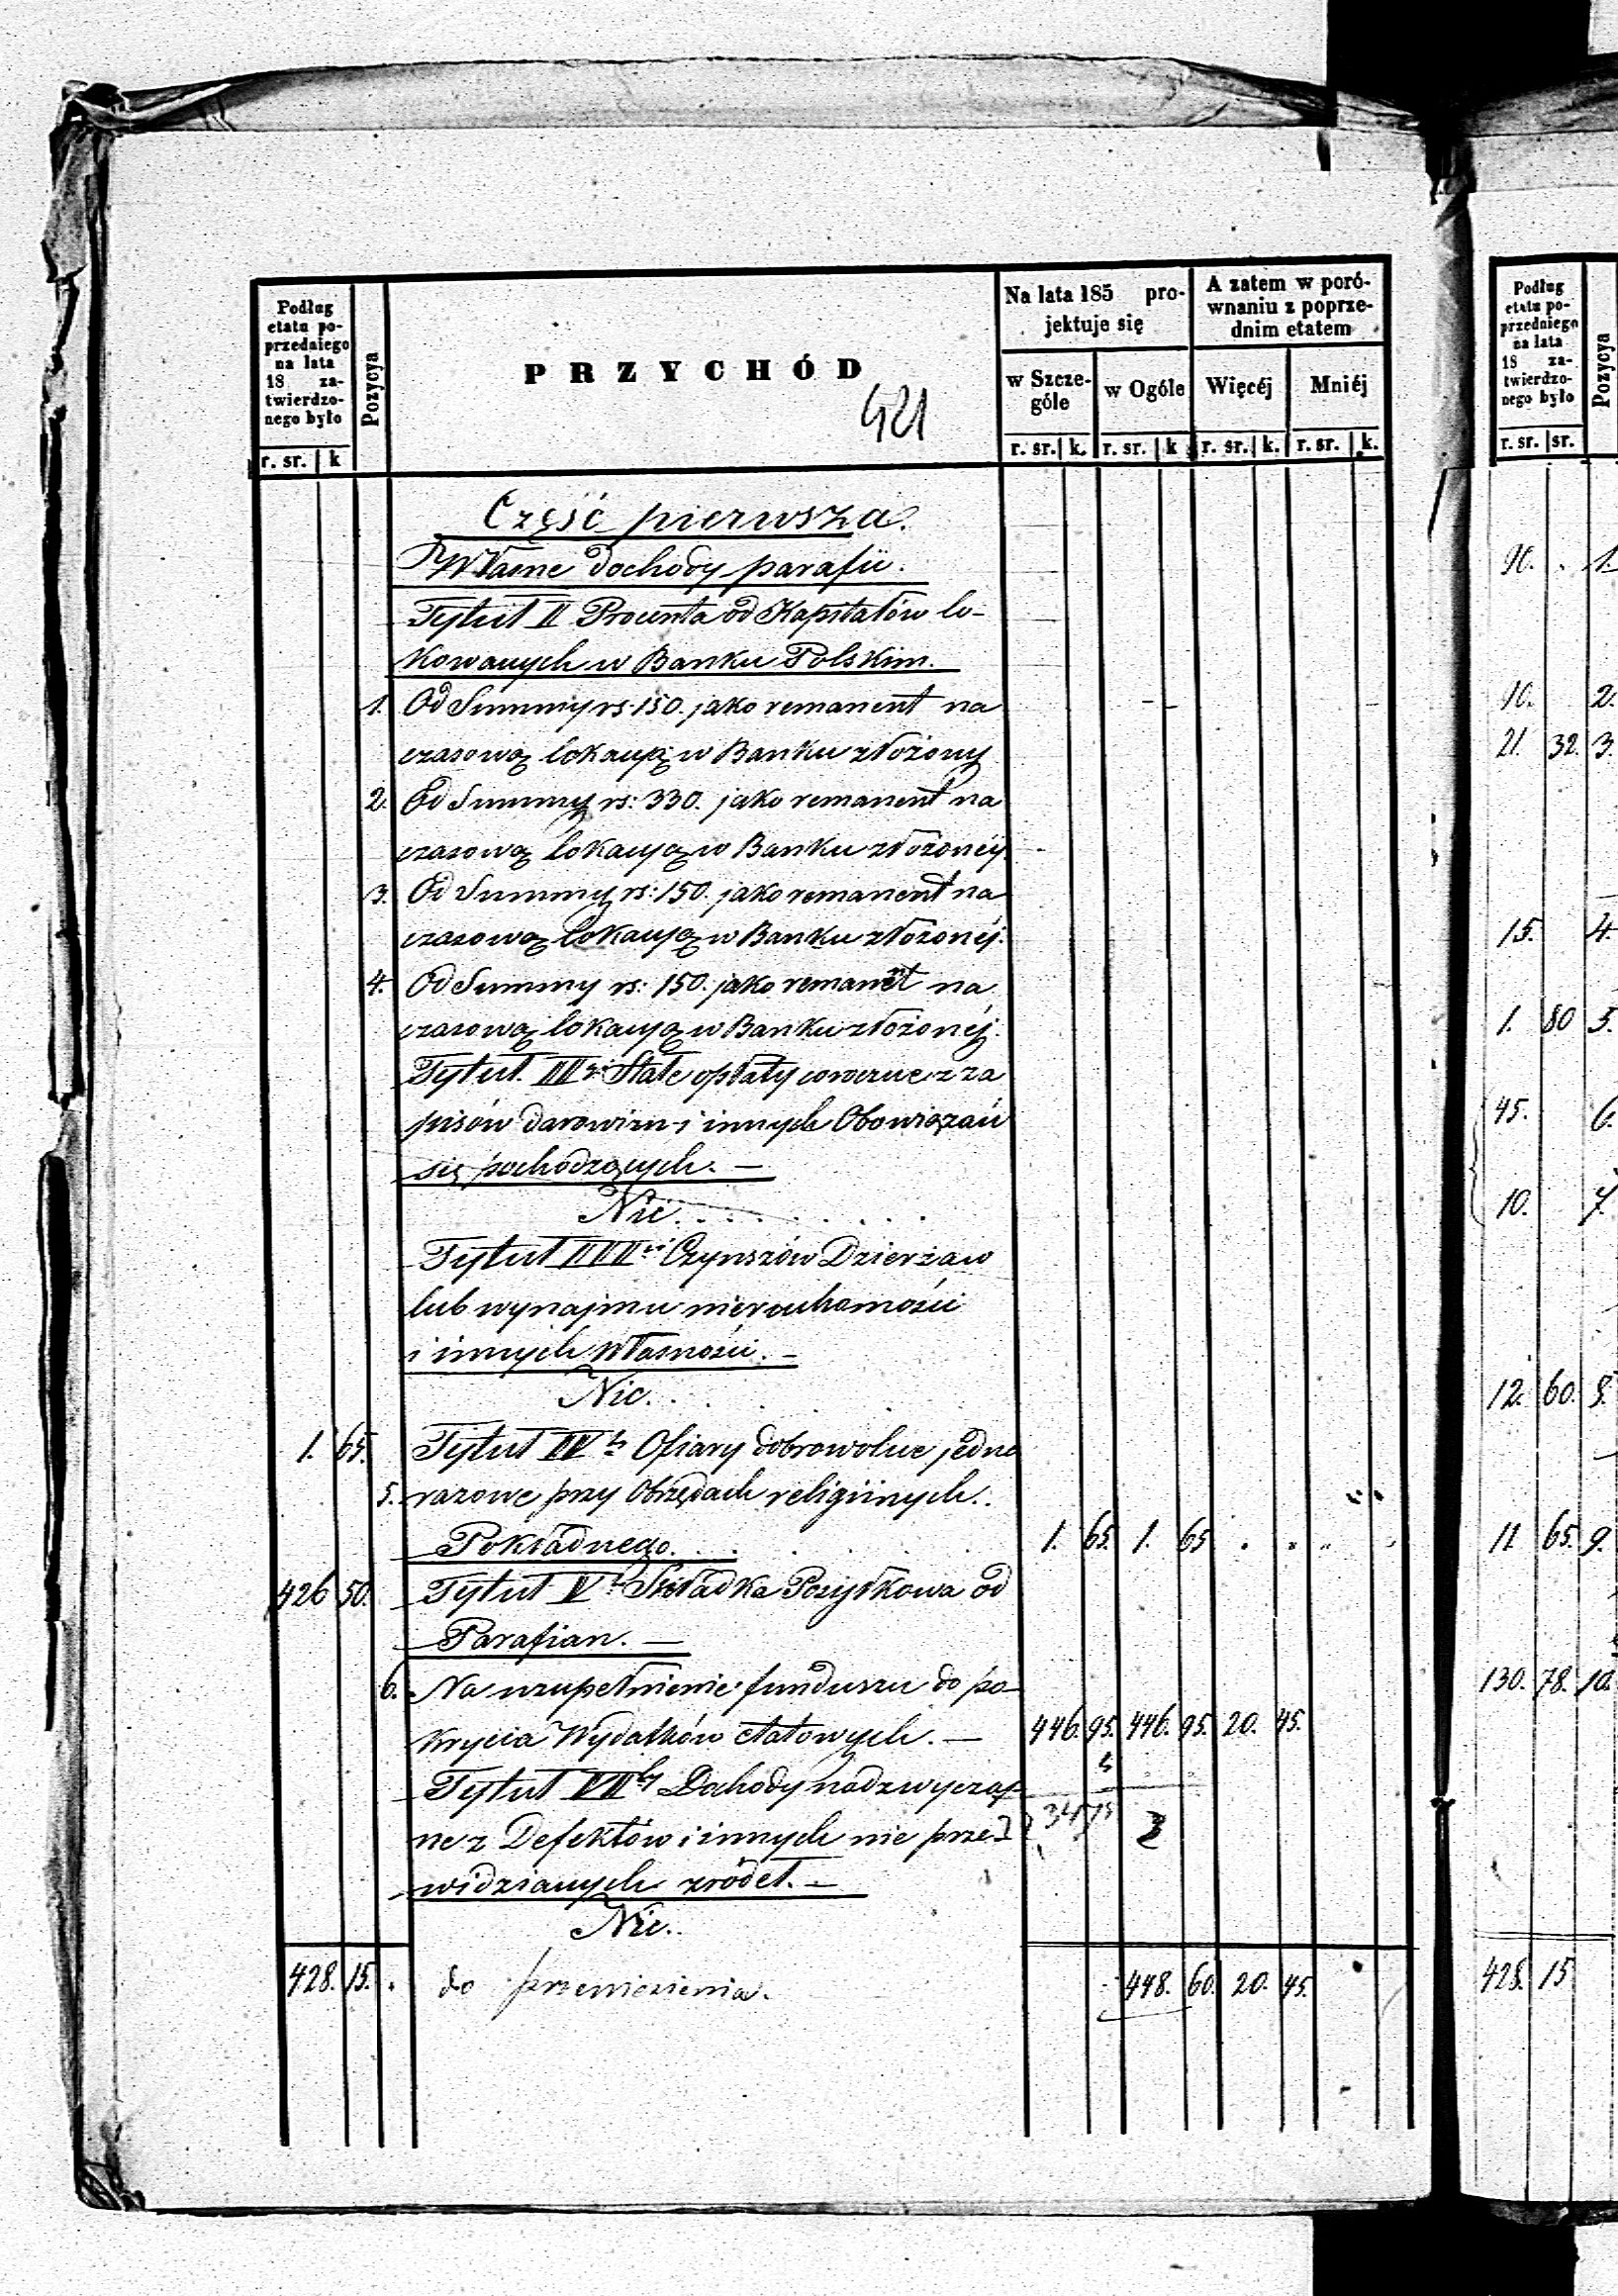 Podług
etatu po-
przedniego
na lata
18 za-
twierdzo-
nego było
r. sr. k
Pozycya
PRZYCHÓD
421
Na lata 185 pro-
jektuje się
w Szcze-
góle
w Ogóle
r. sr. k. r. sr. k
A zatem w poró-
wnaniu z poprze-
dnim etatem
Więcéj Mniéj
r. sr. k. r. sr. k.
Część pierwsza.
Własne dochody parafii.
Tytuł II Procenta od Kapitałów lo-
kowanych w Banku Polskim.
1. Od Summy rs 150. jako remanent na
czasową lokacyą w Banku złożony
2. Od Summy rs: 330. jako remanent na
czasową lokacyą w Banku złożonéy
3. Od Summy rs: 150. jako remanent na
czasową lokacyą w Banku złożonéj.
4. Od Summy rs: 150. jako remanet na
czasową lokacyą w Banku złożonéj.
Tytuł. III Stałe opłaty coroczne z za
pisów darowizn i innych Obowiązań
się pochodzących. —
Nic.
Tytuł IIII Czynszów Dzierżaw
lub wynajmu nieruchomości
i innych Własności. —
Nic.
1. 65. Tytuł IV Ofiary dobrowolne jedno
5. razowe przy Obrzędach religiinych.
Pokładnego. 1. 65. 1. 65
426 50. Tytuł V Składka Pożytkowa od
Parafian. —
6. Na uzupełnienie funduszu do po-
krycia Wydatków etatowych. — 446. 95. 446. 95. 20. 45.
Tytuł VII Dochody nadzwyczaj
ne z Defektów i innych nie prze-
widzianych źródeł. —
Nic.
428. 15. do przeniesienia. 448. 60. 20. 45.
Podług
etatu po-
przedniego
na lata
18 za-
twierdzo-
nego było
r. sr. sr.
Pozycya
90. 1.
10. 2.
21. 32. 3.
15. 4.
1. 80 5.
45. 6.
10. 7.
12. 60. 8.
11 65. 9.
130. 78. 10.
428. 15